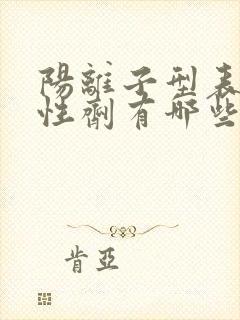 陽離子型表
性劑有哪些
肯亞